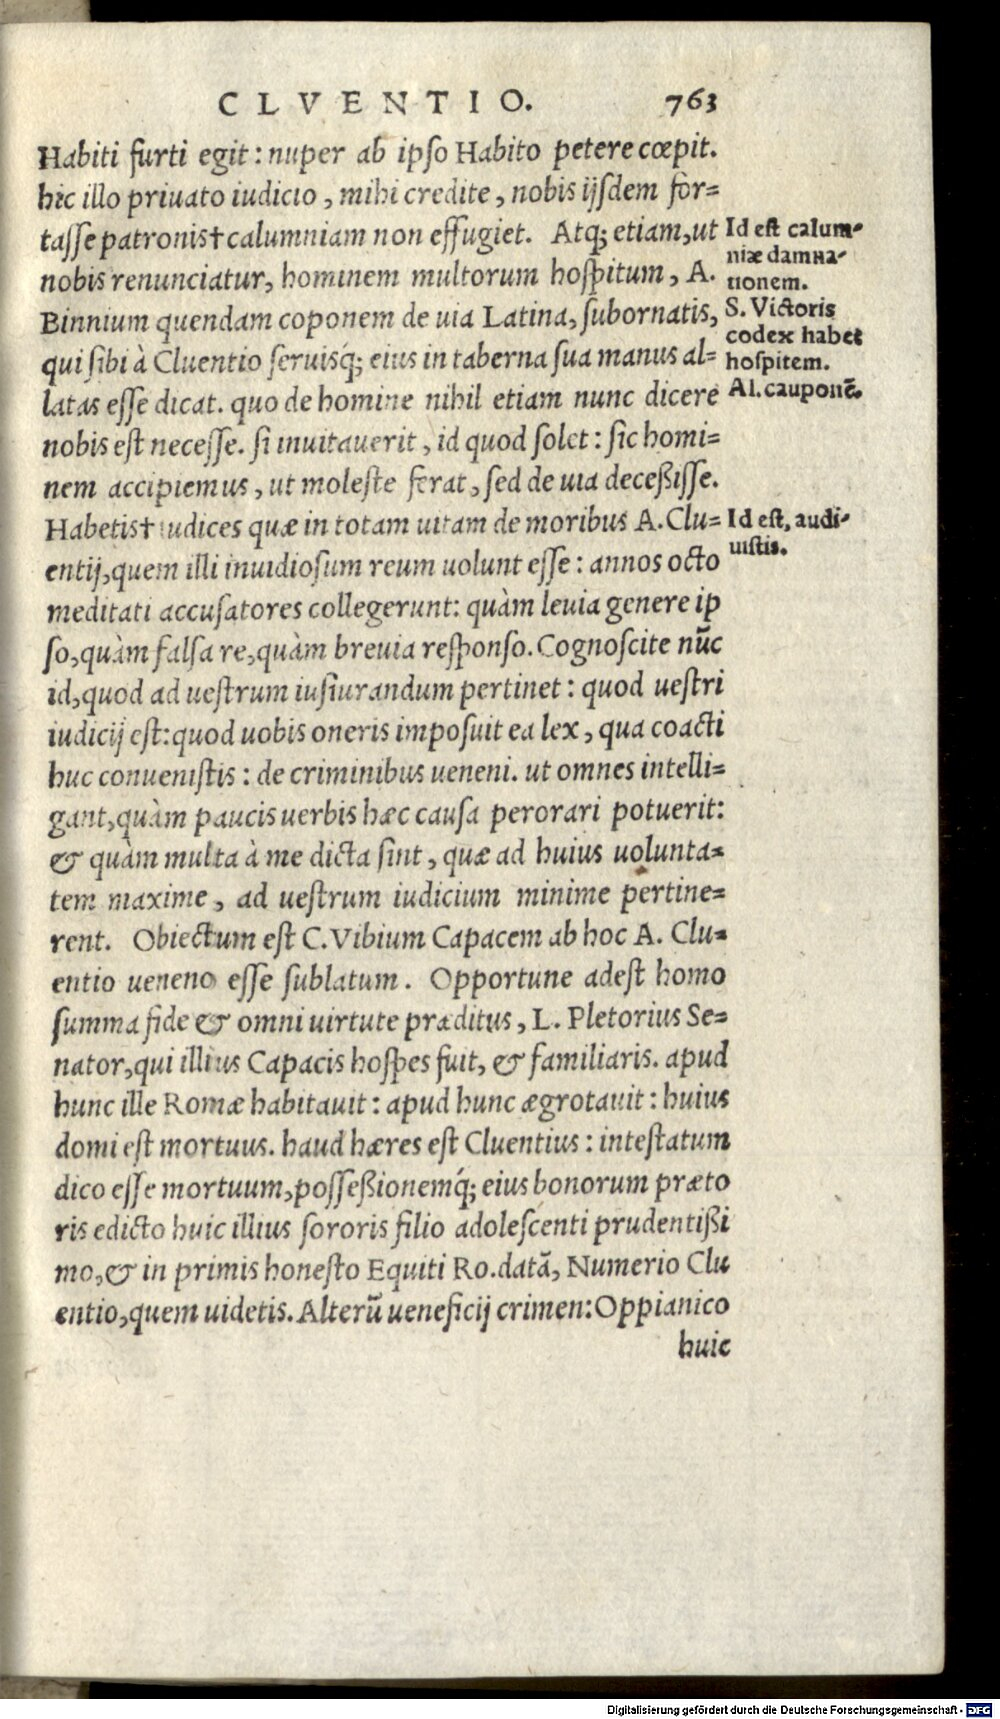 CLVENTIO. 763
Habiti furti egit: nuper ab ipso Habito petere cœpit.
hic illo priuato iudicio, mihi credite, nobis ijsdem for=
tasse patronis† calumniam non effugiet. Atq; etiam, ut
nobis renunciatur, hominem multorum hospitum, A.
Binnium quendam coponem de uia Latina, subornatis,
qui sibi à Cluentio seruisq́; eius in taberna sua manus al=
latas esse dicat. quo de homine nihil etiam nunc dicere
nobis est necesse. si inuitauerit, id quod solet: sic homi=
nem accipiemus, ut moleste ferat, sed de uia deceßisse.
Habetis† iudices quæ in totam uitam de moribus A. Clu=
entij, quem illi inuidiosum reum uolunt esse: annos octo
meditati accusatores collegerunt: quàm leuia genere ip
so, quàm falsa re, quàm breuia responso. Cognoscite nūc
id, quod ad uestrum iusiurandum pertinet: quod uestri
iudicij est: quod uobis oneris imposuit ea lex, qua coacti
huc conuenistis: de criminibus ueneni. ut omnes intelli=
gant, quàm paucis uerbis hæc causa perorari potuerit:
& quàm multa à me dicta sint, quæ ad huius uolunta=
tem maxime, ad uestrum iudicium minime pertine=
rent. Obiectum est C. Vibium Capacem ab hoc A. Clu=
entio ueneno esse sublatum. Opportune adest homo
summa fide & omni uirtute præditus, L. Pletorius Se=
nator, qui illius Capacis hospes fuit, & familiaris. apud
hunc ille Romæ habitauit: apud hunc ægrotauit: huius
domi est mortuus. haud hæres est Cluentius: intestatum
dico esse mortuum, possessionemq́; eius bonorum præto
ris edicto huic illius sororis filio adolescenti prudentißi
mo, & in primis honesto Equiti Ro. datā, Numerio Clu
entio, quem uidetis. Alterū ueneficij crimen: Oppianico
huic
Id est calum-
niæ damna-
tionem.
S. Victoris
codex habet
hospitem.
Al. cauponē.
Id est, audi-
uistis.
Digitalisierung gefördert durch die Deutsche Forschungsgemeinschaft - DFG